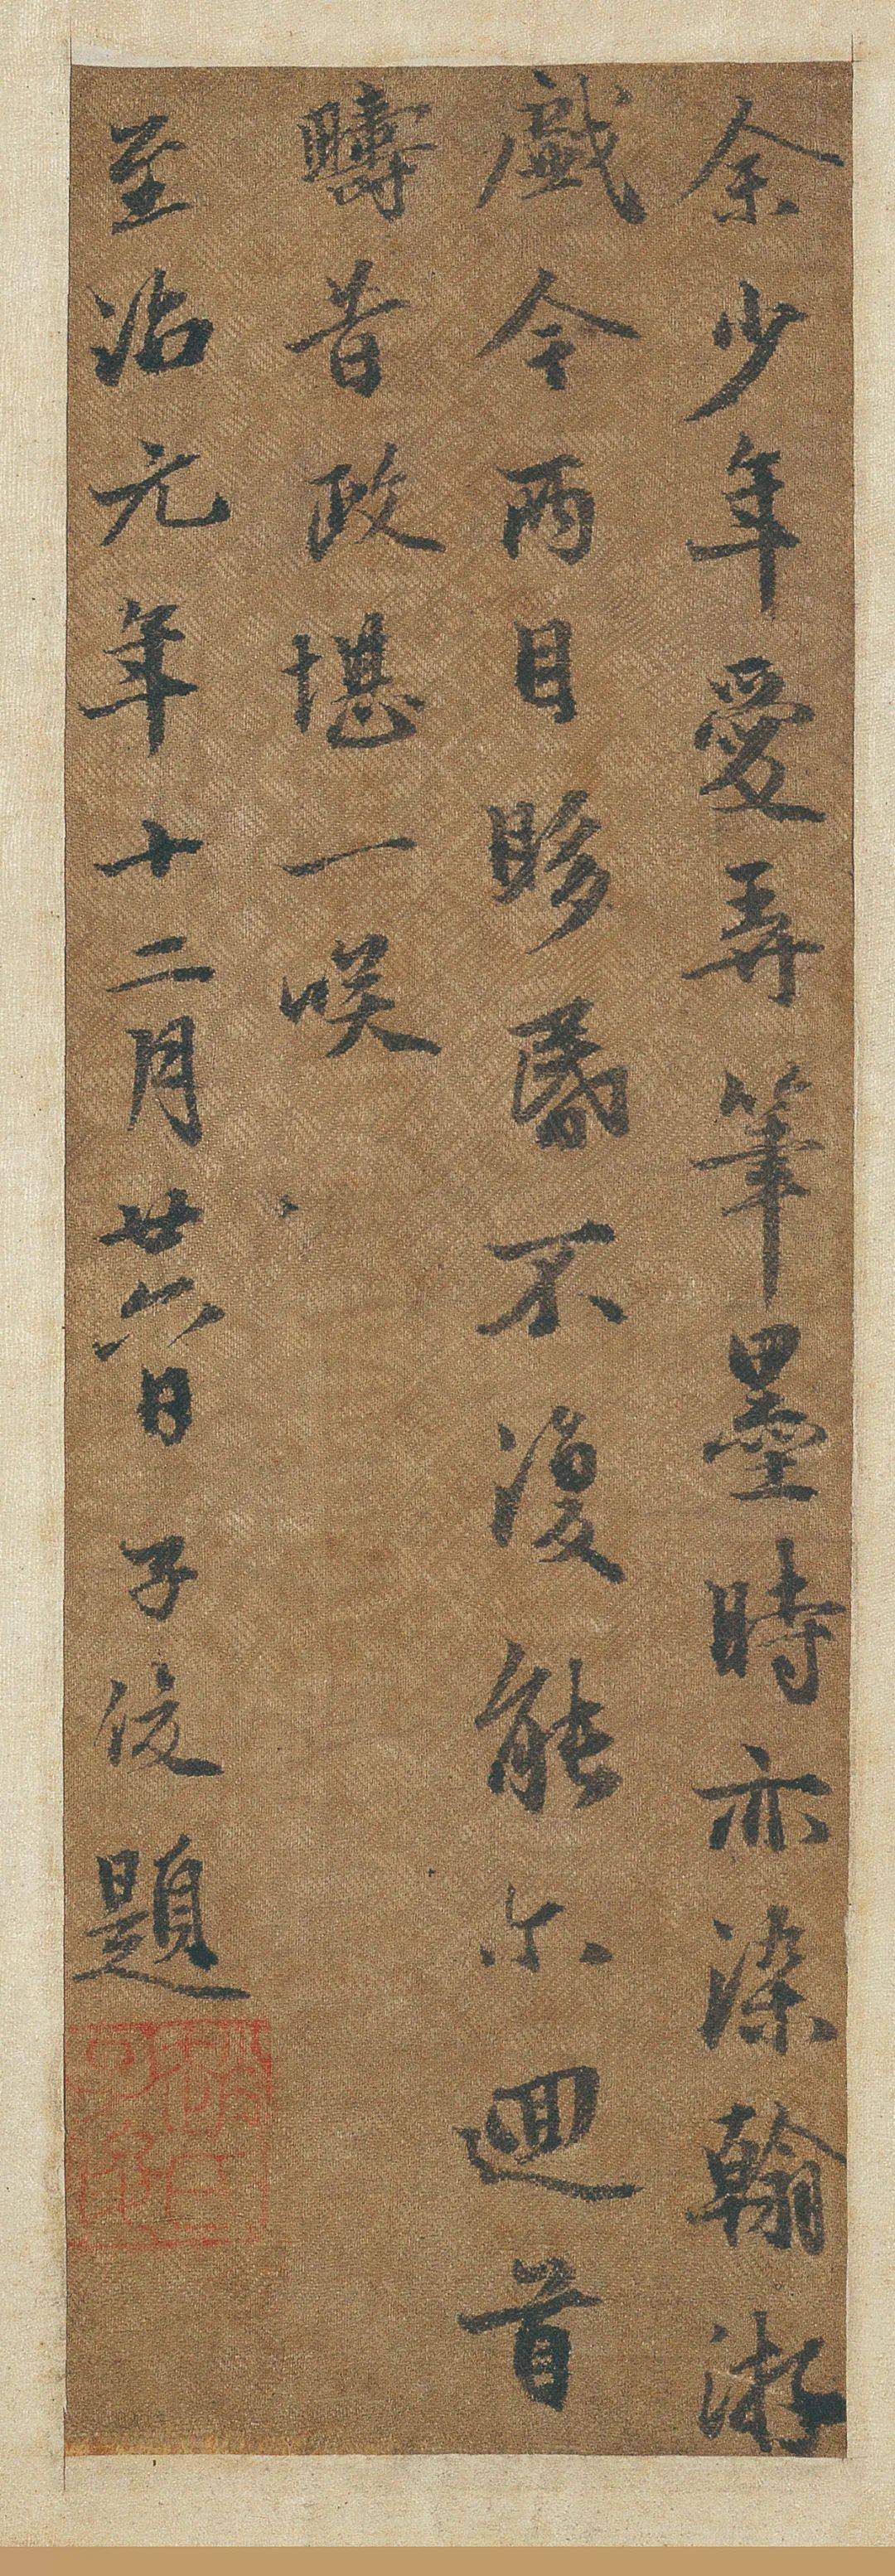 余少年愛弄筆墨時亦染翰游
戲今兩目眵昏不復能尔迴首
疇昔政堪一咲
至治元年十二月廿六日子俊題